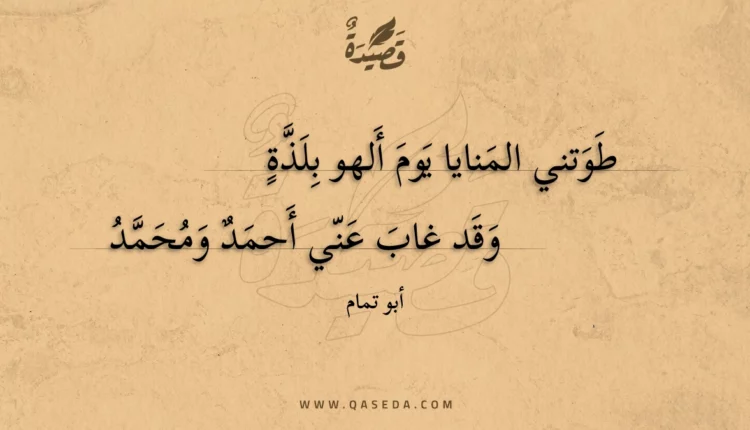 قَصِيدَةٌ
طَوَتني المَنايا يَومَ أَلهو بِلَذَّةٍ
وَقَد غابَ عَنّي أَحمَدٌ وَمُحَمَّدُ
أبو تمام
WWW.QASEDA.COM